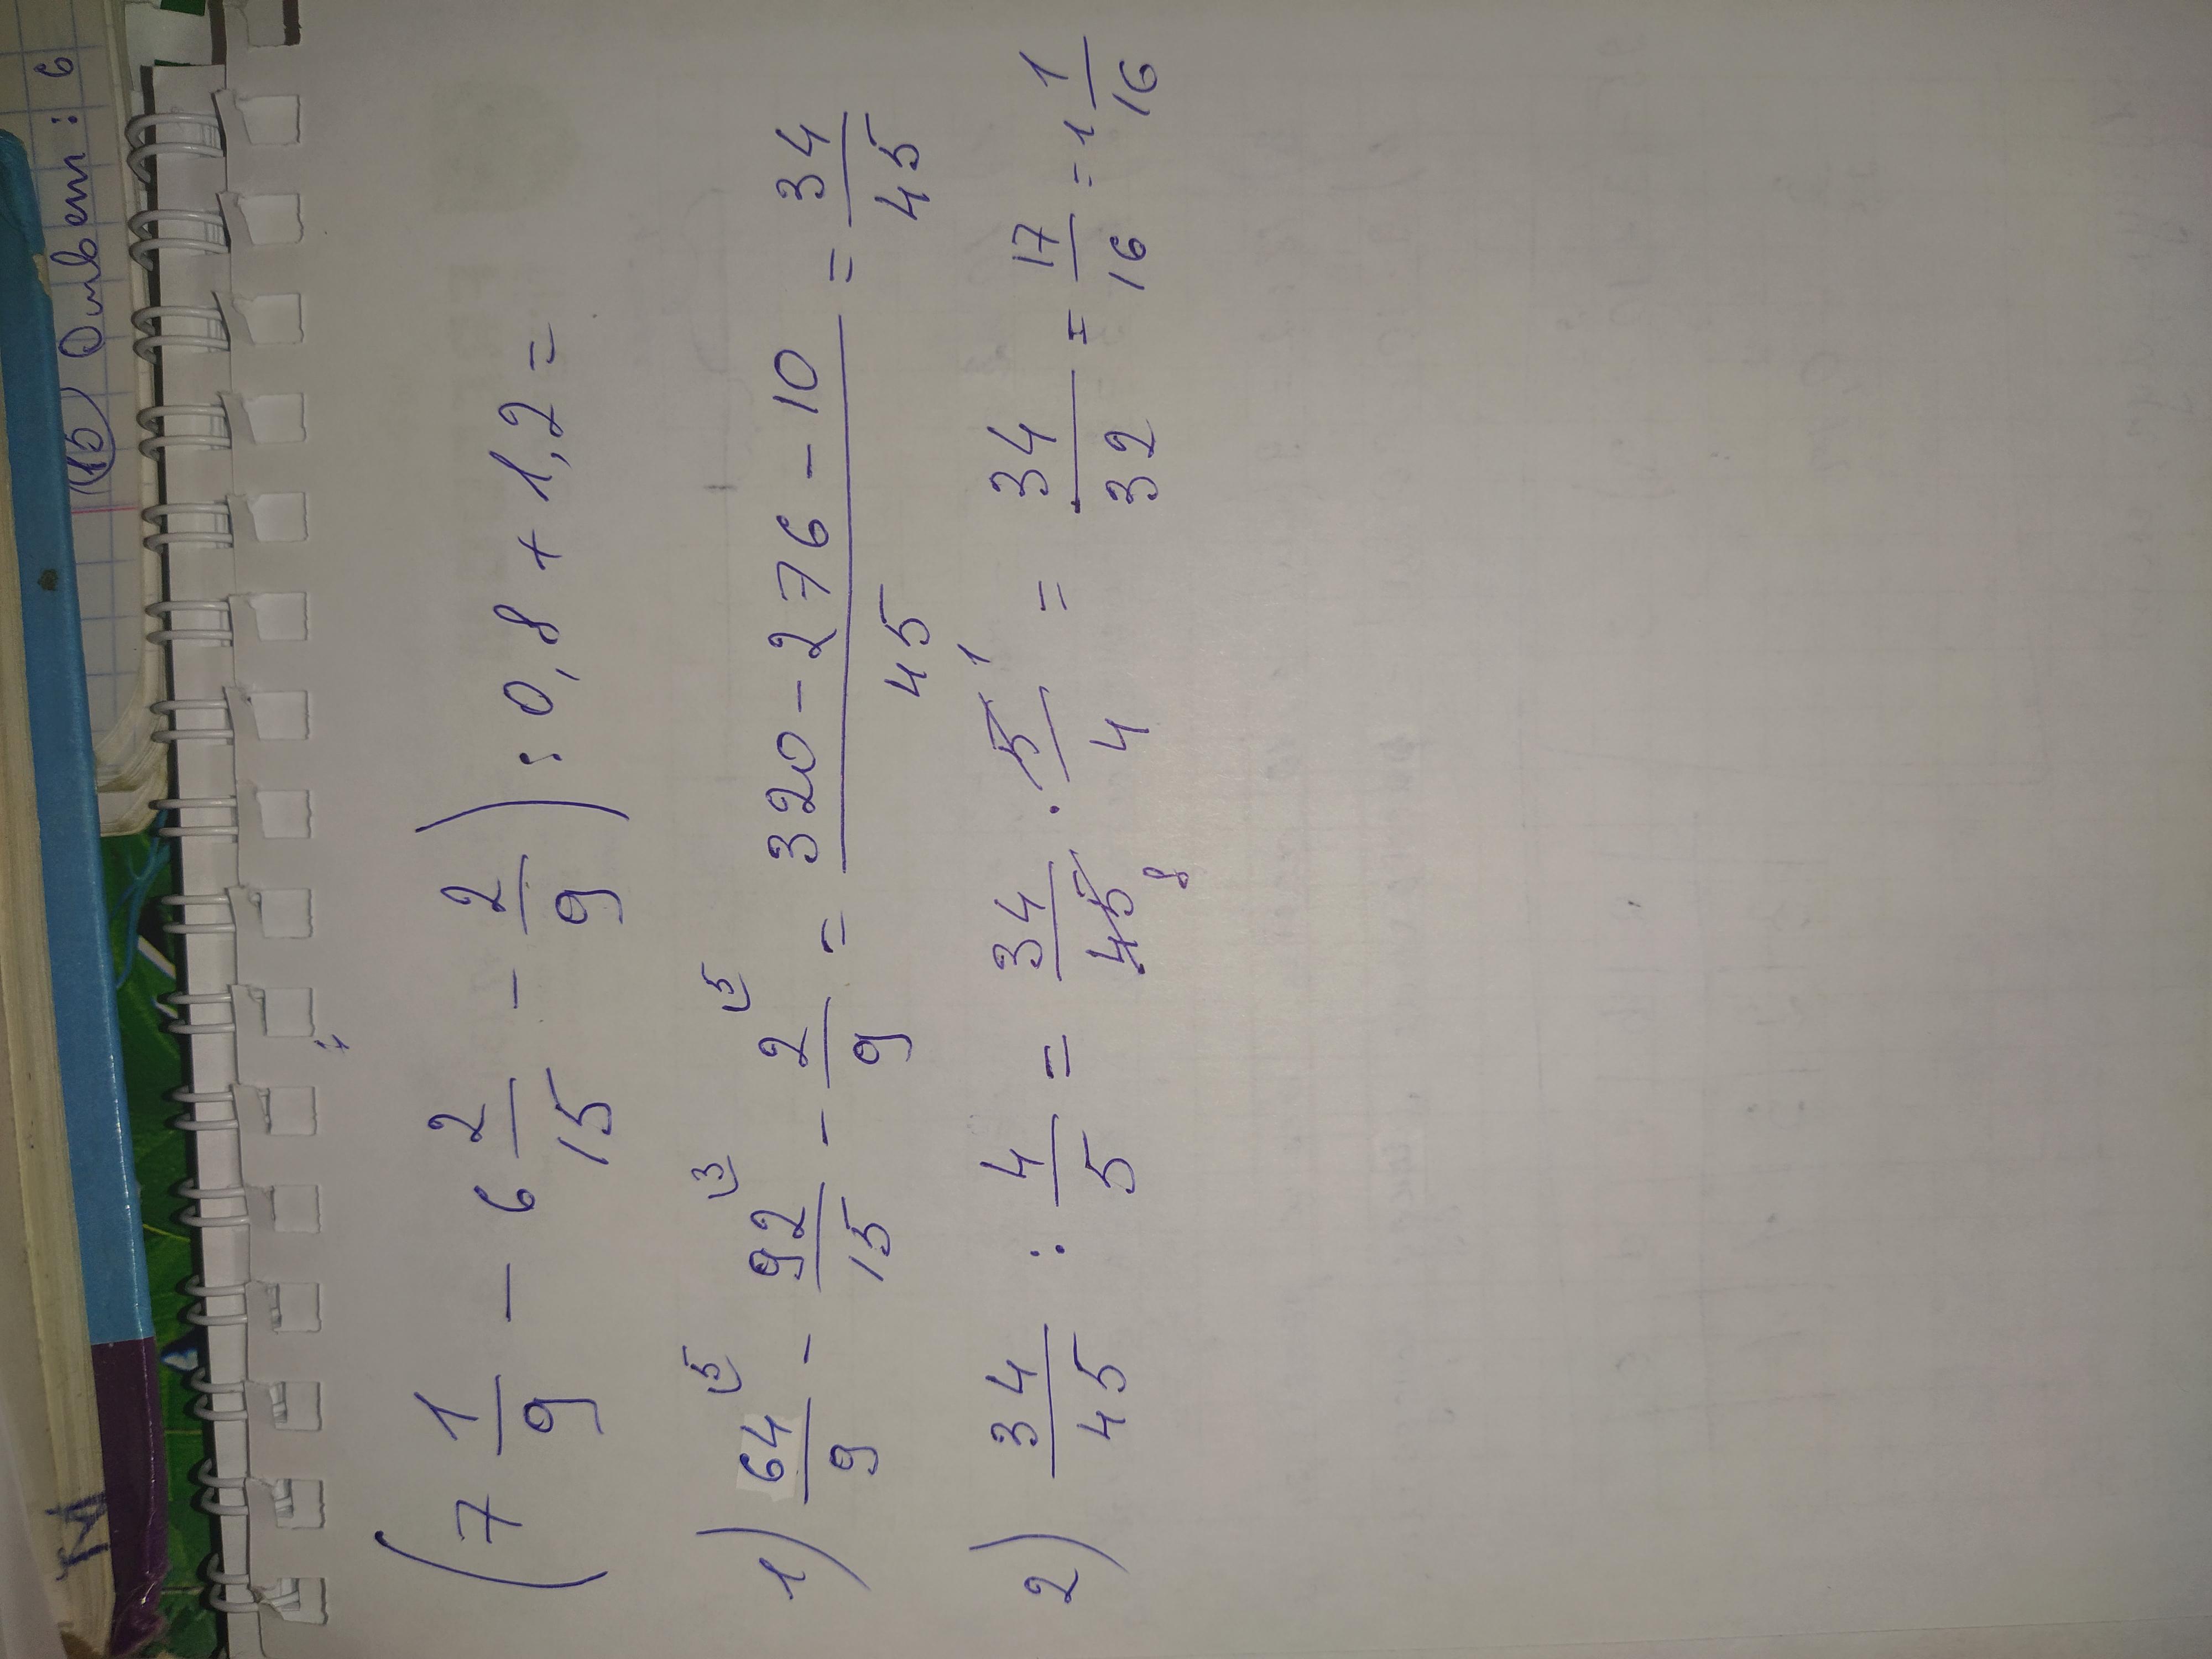 15) Ответ: 6
(7 1/9 - 6 2/15 - 2/9) : 0,8 + 1,2 =
1) 64/9 ⁽⁵ - 92/15 ⁽³ - 2/9 ⁽⁵ = (320 - 276 - 10)/45 = 34/45
2) 34/45 : 4/5 = 34/45 8 · 5/4 1 = 34/32 = 17/16 = 1 1/16